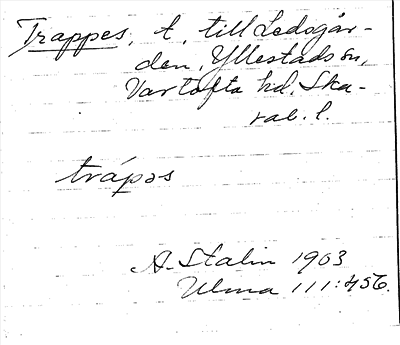 Trappes, t. till Ledsgår-
den, Yllestads sn,
Vartofta hd, Ska-
rab. l.
trápəs
A. Stalin 1903
Ulma 111:456.